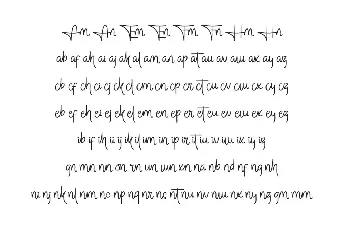 An An Em En Fm Fn Hm Hn
ab af ah ai aj ak al am an ap at au av aw ax ay az
cb cf ch ci cj ck cl cm cn cp cr ct cu cv cw cx cy cz
eb ef eh ei ej ek el em en ep er et eu ev ew ex ey ez
ib if ih ii ij ik il im in ip ir it iu iv iw ix iy iz
gn mn nn on rn un wn xn na nb nd nf ng nh
ni nj nk nl nm no np nq nr ns nt nu nv nw nx ny nz gm mm